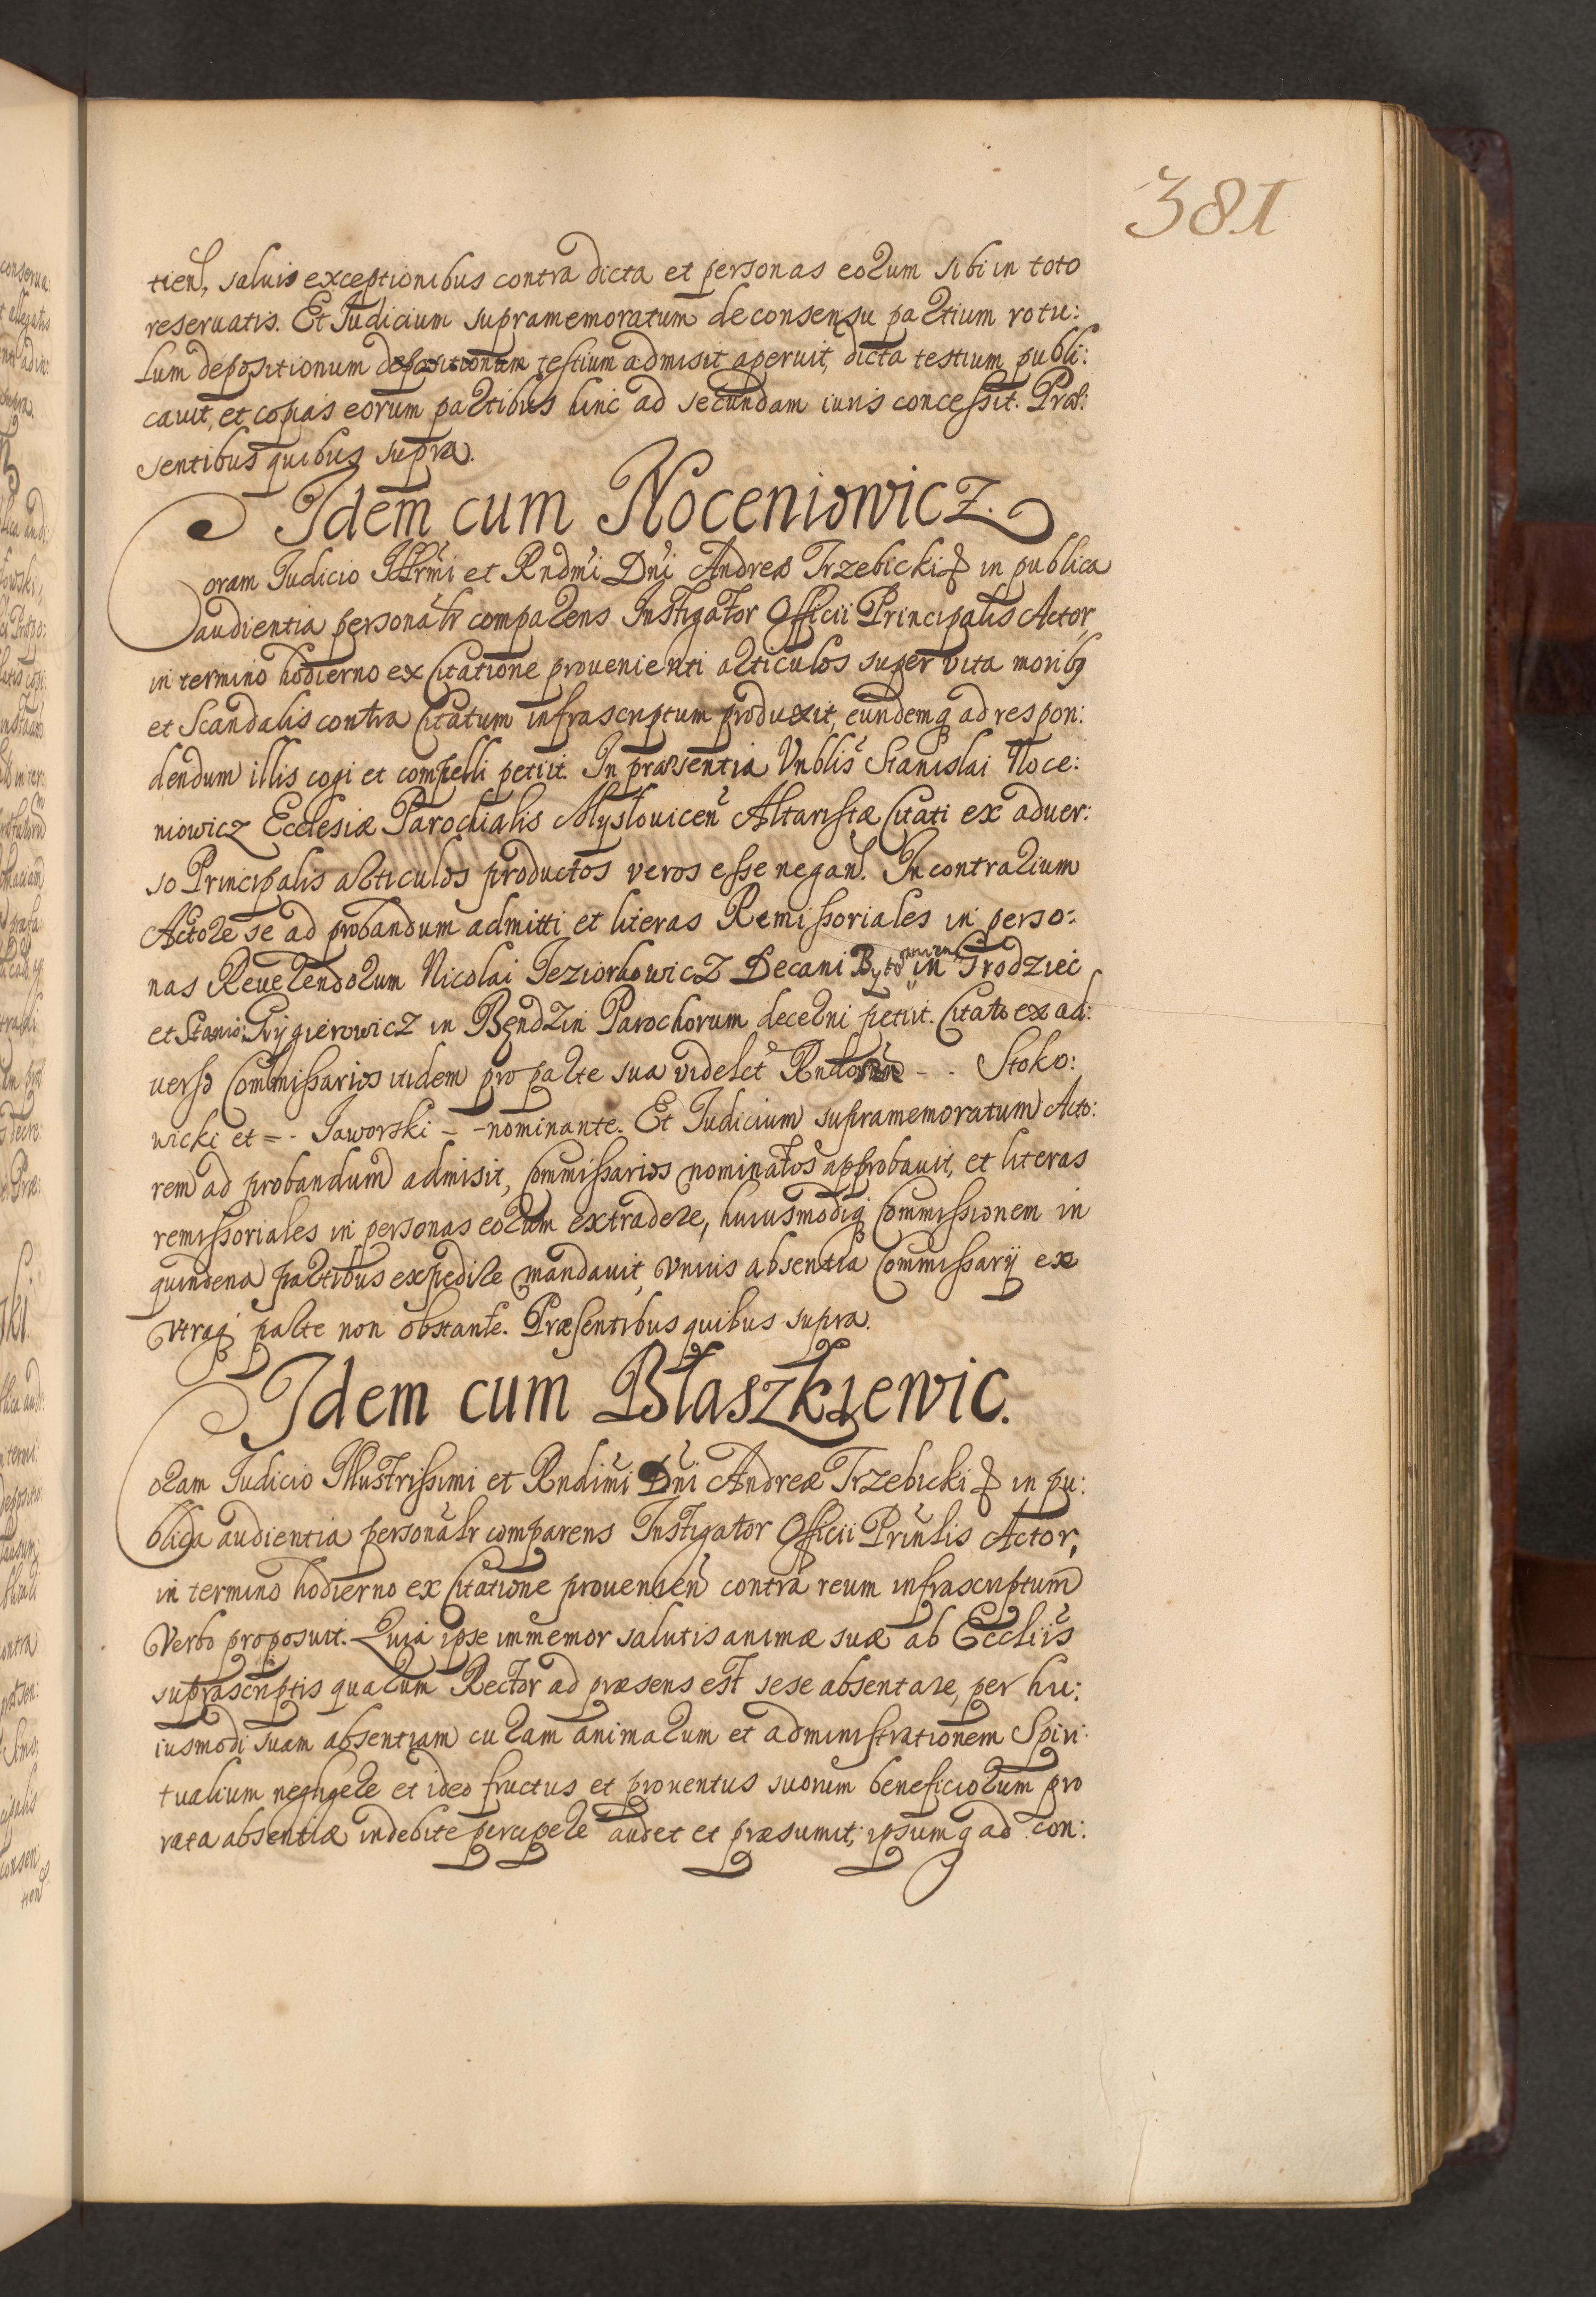 381
tien̄, saluis exceptionibus contra dicta et personas eorum sibi in toto
reseruatis. Et Iudicium supramemoratum de consensu partium rotu:
lum depositionum depositionum testium admisit aperuit, dicta testium publi:
cauit, et copias eorum partibus hinc ad secundam iuris concessit. Præ:
sentibus quibus supra.
Idem cum Noceniowicz.
Coram Iudicio Illr̃mi et Rndm̃i Dñi Andreæ Trzebicki & in publica
audientia personalr̃ comparens Instigator Officii Principalis Actor
in termino hodierno ex Citatione prouenienti articulos super vita moribq
et Scandalis contra Citatum infrascriptum produxit, eundemq ad respon:
dendum illis cogi et compelli petiit. In præsentia Vnblis̃ Stanislai Noce:
niowicz Ecclesiæ Parochialis Mysłouiceñ Altaristæ Citati ex aduer:
so Principalis articulos productos veros esse negañ. In contrarium
Actore se ad probandum admitti et literas Remissoriales in perso:
nas Reuerendorum Nicolai Jeziorkowicz Decani Bytomien̄ in Grodziec
et Stanis: Grygierowicz in Bendzin Parochorum decerni petiit. Citato ex ad:
uerso Commissarios itidem pro parte sua videlet̃ Rndorum - - Stoko:
wicki et = - Jaworski - - nominante. Et Iudicium supramemoratum Acto:
rem ad probandum admisit, Commissarios nominatos approbauit, et literas
remissoriales in personas eorum extradere, huiusmodiq Commissionem in
quindena partibus expedire mandauit, vnius absentia Commissarij ex
vtraq parte non obstante. Præsentibus quibus supra.
Idem cum Błaszkiewic.
Coram Iudicio Illustrissimi et Rndim̃i Dñi Andreæ Trzebicki & in pu:
blica audientia personalr̃ comparens Instigator Officii Prinlis̃ Actor,
in termino hodierno ex Citatione prouenieñ contra reum infrascriptum
Verbo proposuit. Quia ipse immemor salutis animæ suæ ab Eccliis̃
suprascriptis quarum Rector ad præsens est sese absentare, per hu:
iusmodi suam absentiam curam animarum et administrationem Spiri:
tualium negligere et ideo fructus et prouentus suorum beneficiorum pro
rata absentiæ indebite percipere audet et præsumit; ipsumq ad con: